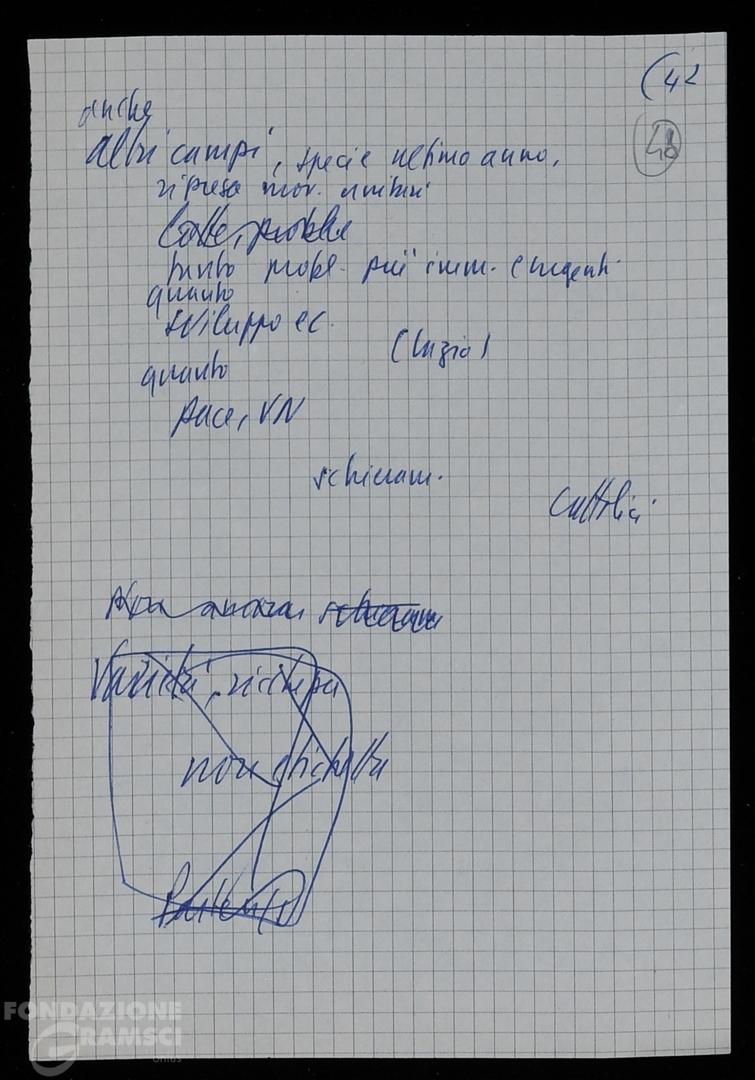 (42
48
anche
Altri campi, specie ultimo anno,
ripresa mov. unitari
Lotte, proble
tanto probl. più imm. e urgenti
quanto
sviluppo ec.
(Lazio)
quanto
pace, VN
schieram.
Cattolici
schieram
Varietà, ricchezza
non etichetta
FONDAZIONE
GRAMSCI
Onlus